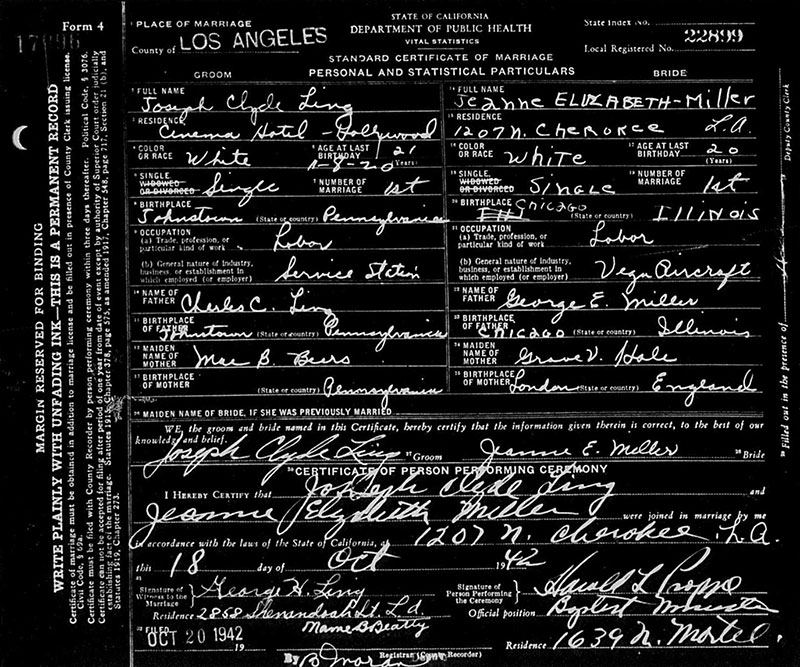 Form 4
PLACE OF MARRIAGE
County of LOS ANGELES
STATE OF CALIFORNIA
DEPARTMENT OF PUBLIC HEALTH
VITAL STATISTICS
STANDARD CERTIFICATE OF MARRIAGE
State Index No.
Local Registered No. 22899
GROOM PERSONAL AND STATISTICAL PARTICULARS BRIDE
FULL NAME Joseph Clyde Ling
FULL NAME Jeanne ELIZABETH-Miller
RESIDENCE Cinema Hotel - Hollywood
RESIDENCE 1207 N. CHEROKEE L.A.
COLOR OR RACE White AGE AT LAST BIRTHDAY 21 (Years) 11-8-20
COLOR OR RACE WHITE AGE AT LAST BIRTHDAY 20 (Years)
SINGLE WIDOWED OR DIVORCED Single NUMBER OF MARRIAGE 1st
SINGLE WIDOWED OR DIVORCED Single NUMBER OF MARRIAGE 1st
BIRTHPLACE Johnstown (State or country) Pennsylvania
BIRTHPLACE CHICAGO (State or country) ILLINOIS
OCCUPATION
(a) Trade, profession, or particular kind of work Labor
(b) General nature of industry, business, or establishment in which employed (or employer) Service Station
OCCUPATION
(a) Trade, profession, or particular kind of work Labor
(b) General nature of industry, business, or establishment in which employed (or employer) Vega Aircraft
NAME OF FATHER Charles C. Ling
NAME OF FATHER George E. Miller
BIRTHPLACE OF FATHER Johnstown (State or country) Pennsylvania
BIRTHPLACE OF FATHER CHICAGO (State or country) Illinois
MAIDEN NAME OF MOTHER Mae B. Beers
MAIDEN NAME OF MOTHER Grave V. Hale
BIRTHPLACE OF MOTHER (State or country) Pennsylvania
BIRTHPLACE OF MOTHER London (State or country) England
MAIDEN NAME OF BRIDE, IF SHE WAS PREVIOUSLY MARRIED
WE, the groom and bride named in this Certificate, hereby certify that the information given therein is correct, to the best of our
knowledge and belief.
Joseph Clyde Ling Groom Jeanne E. Miller Bride
CERTIFICATE OF PERSON PERFORMING CEREMONY
I HEREBY CERTIFY that Joseph Clyde Ling and
Jeanne Elizabeth Miller were joined in marriage by me
in accordance with the laws of the State of California, at 1207 N. Cherokee L.A.
this 18 day of Oct 1942
Signature of Witness to the Marriage George H. Ling
Signature of Person Performing the Ceremony Harold L Proppe
Residence 2858 Shenandoah St. L.A.
Official position Baptist Minister
Mame B Beatty
FILED OCT 20 1942
19
Residence 1639 N. Mortel.
Registrar (County Recorder)
By
MARGIN RESERVED FOR BINDING
WRITE PLAINLY WITH UNFADING INK—THIS IS A PERMANENT RECORD
Certificate of marriage must be obtained in addition to marriage license and be filled out in presence of County Clerk issuing license.
Civil Code, § 69a.
Certificate must be filed with County Recorder by person performing ceremony within three days thereafter. Political Code, § 3076.
Certificate can not be accepted for filing after period of one year from date of event except by authority of Superior Court order judicially
establishing fact of the marriage. Statutes 1915, Chapter 378, page 575, as amended 1917, Chapter 548, page 717, Section 21 (b), and
Statutes 1919, Chapter 273.
Filled out in the presence of
Deputy County Clerk